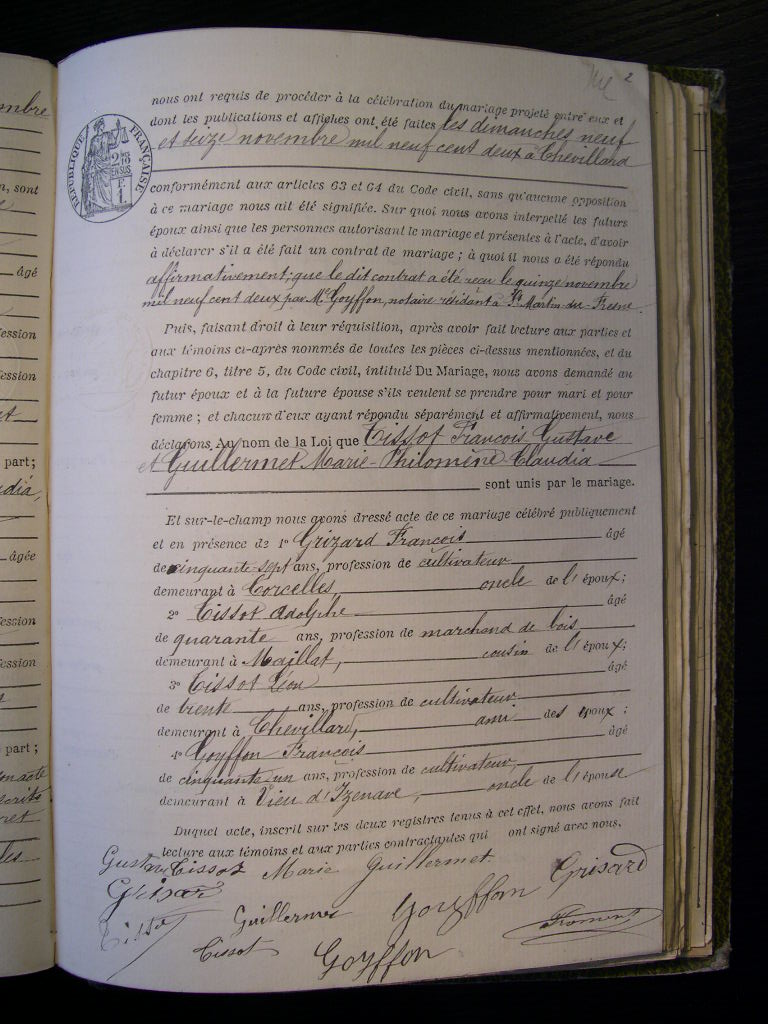 2
nous ont requis de procéder à la célébration du mariage projeté entre eux et
dont les publications et affiches ont été faites les dimanches neuf
et seize novembre mil neuf cent deux à Chevillard
RÉPUBLIQUE FRANÇAISE
conformément aux articles 63 et 64 du Code civil, sans qu'aucune opposition
à ce mariage nous ait été signifiée. Sur quoi nous avons interpellé les futurs
époux ainsi que les personnes autorisant le mariage et présentes à l'acte, d'avoir
à déclarer s'il a été fait un contrat de mariage ; à quoi il nous a été répondu
affirmativement; que le dit contrat a été reçu le quinze novembre
mil neuf cent deux par Me Goyffon, notaire résidant à St Martin-du-Fresne.
Puis, faisant droit à leur réquisition, après avoir fait lecture aux parties et
aux témoins ci-après nommés de toutes les pièces ci-dessus mentionnées, et du
chapitre 6, titre 5, du Code civil, intitulé Du Mariage, nous avons demandé au
futur époux et à la future épouse s'ils veulent se prendre pour mari et pour
femme ; et chacun d'eux ayant répondu séparément et affirmativement, nous
déclarons Au nom de la Loi que Tissot François Gustave
et Guillermet Marie-Philomène-Claudia
sont unis par le mariage.
Et sur-le-champ nous avons dressé acte de ce mariage célébré publiquement
et en présence de 1° Grizard François âgé
de cinquante-sept ans, profession de cultivateur
demeurant à Corcelles, oncle de l'époux;
2° Tissot Adolphe âgé
de quarante ans, profession de marchand de bois
demeurant à Maillat, cousin de l'époux;
3° Tissot Léon âgé
de trente ans, profession de cultivateur
demeurant à Chevillard, ami des époux ;
4° Goyffon François âgé
de cinquante un ans, profession de cultivateur,
demeurant à Vieu d'Izenave, oncle de l'épouse
Duquel acte, inscrit sur les deux registres tenus à cet effet, nous avons fait
lecture aux témoins et aux parties contractantes qui ont signé avec nous.
Gustave Tissot Marie Guillermet
Grisard Goyffon Grisard
Tissot Guillermet Froment
Tissot Goyffon